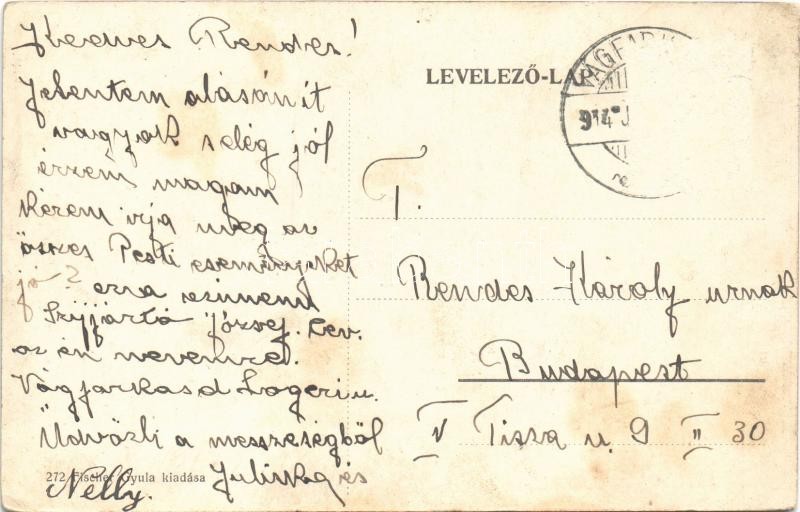 Kedves Rendes!
Jelentem alásan itt
vagyok s elég jól
érzem magam
kérem irja meg az
összes Pesti eseményeket
jó? erre a cimemre
Szijjártó József. Lev.
az én nevemre.
Vágfarkasd Logeri u.
Üdvözli a messzeségből
Juliska és
Nelly.
272 Fischer Gyula kiadása
LEVELEZŐ-LAP
VÁGFARK
914
T.
Rendes Károly urnak
Budapest
IV Tisza u. 9 II 30